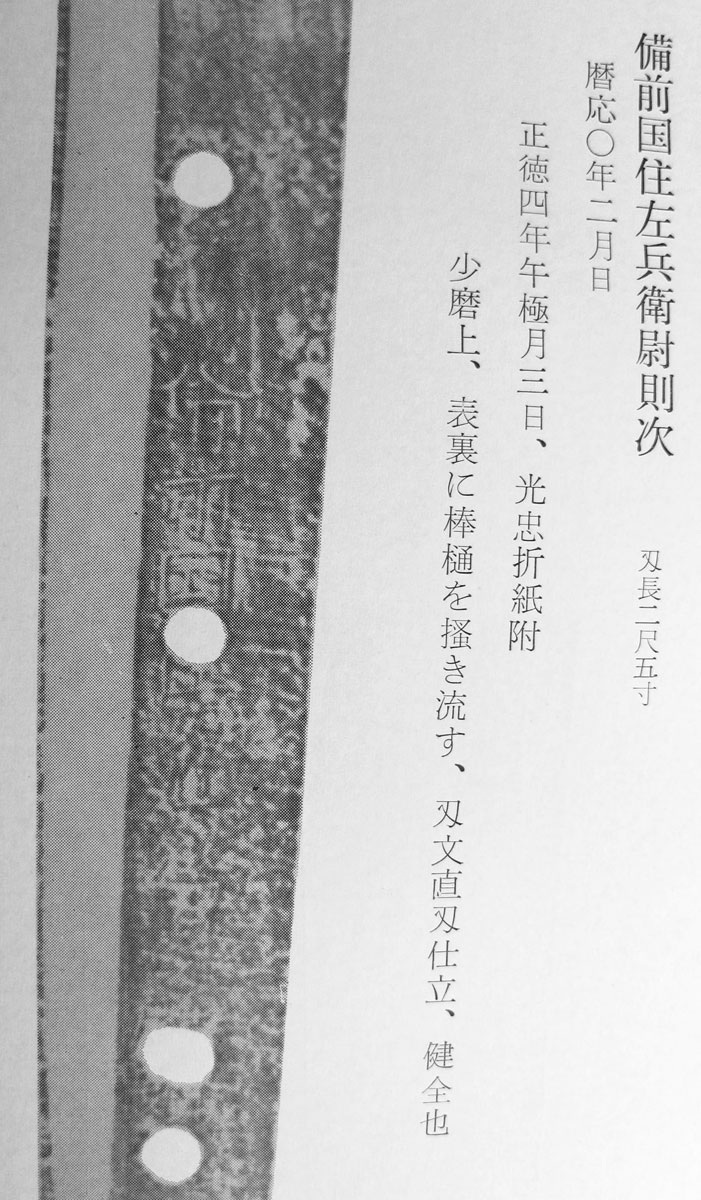 備前国住左兵衛尉則次　刄長二尺五寸
暦応〇年二月日
正徳四年午極月三日、光忠折紙附
少磨上、表裏に棒樋を搔き流す、刄文直刄仕立、健全也
備前国